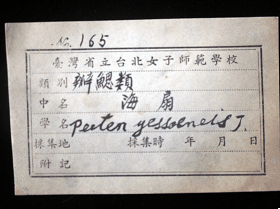 No. 165
臺灣省立台北女子師範學校
類別 瓣鰓類
中名 海扇
學名 Pecten yessoensis J.
採集地 採集時 年 月 日
附記